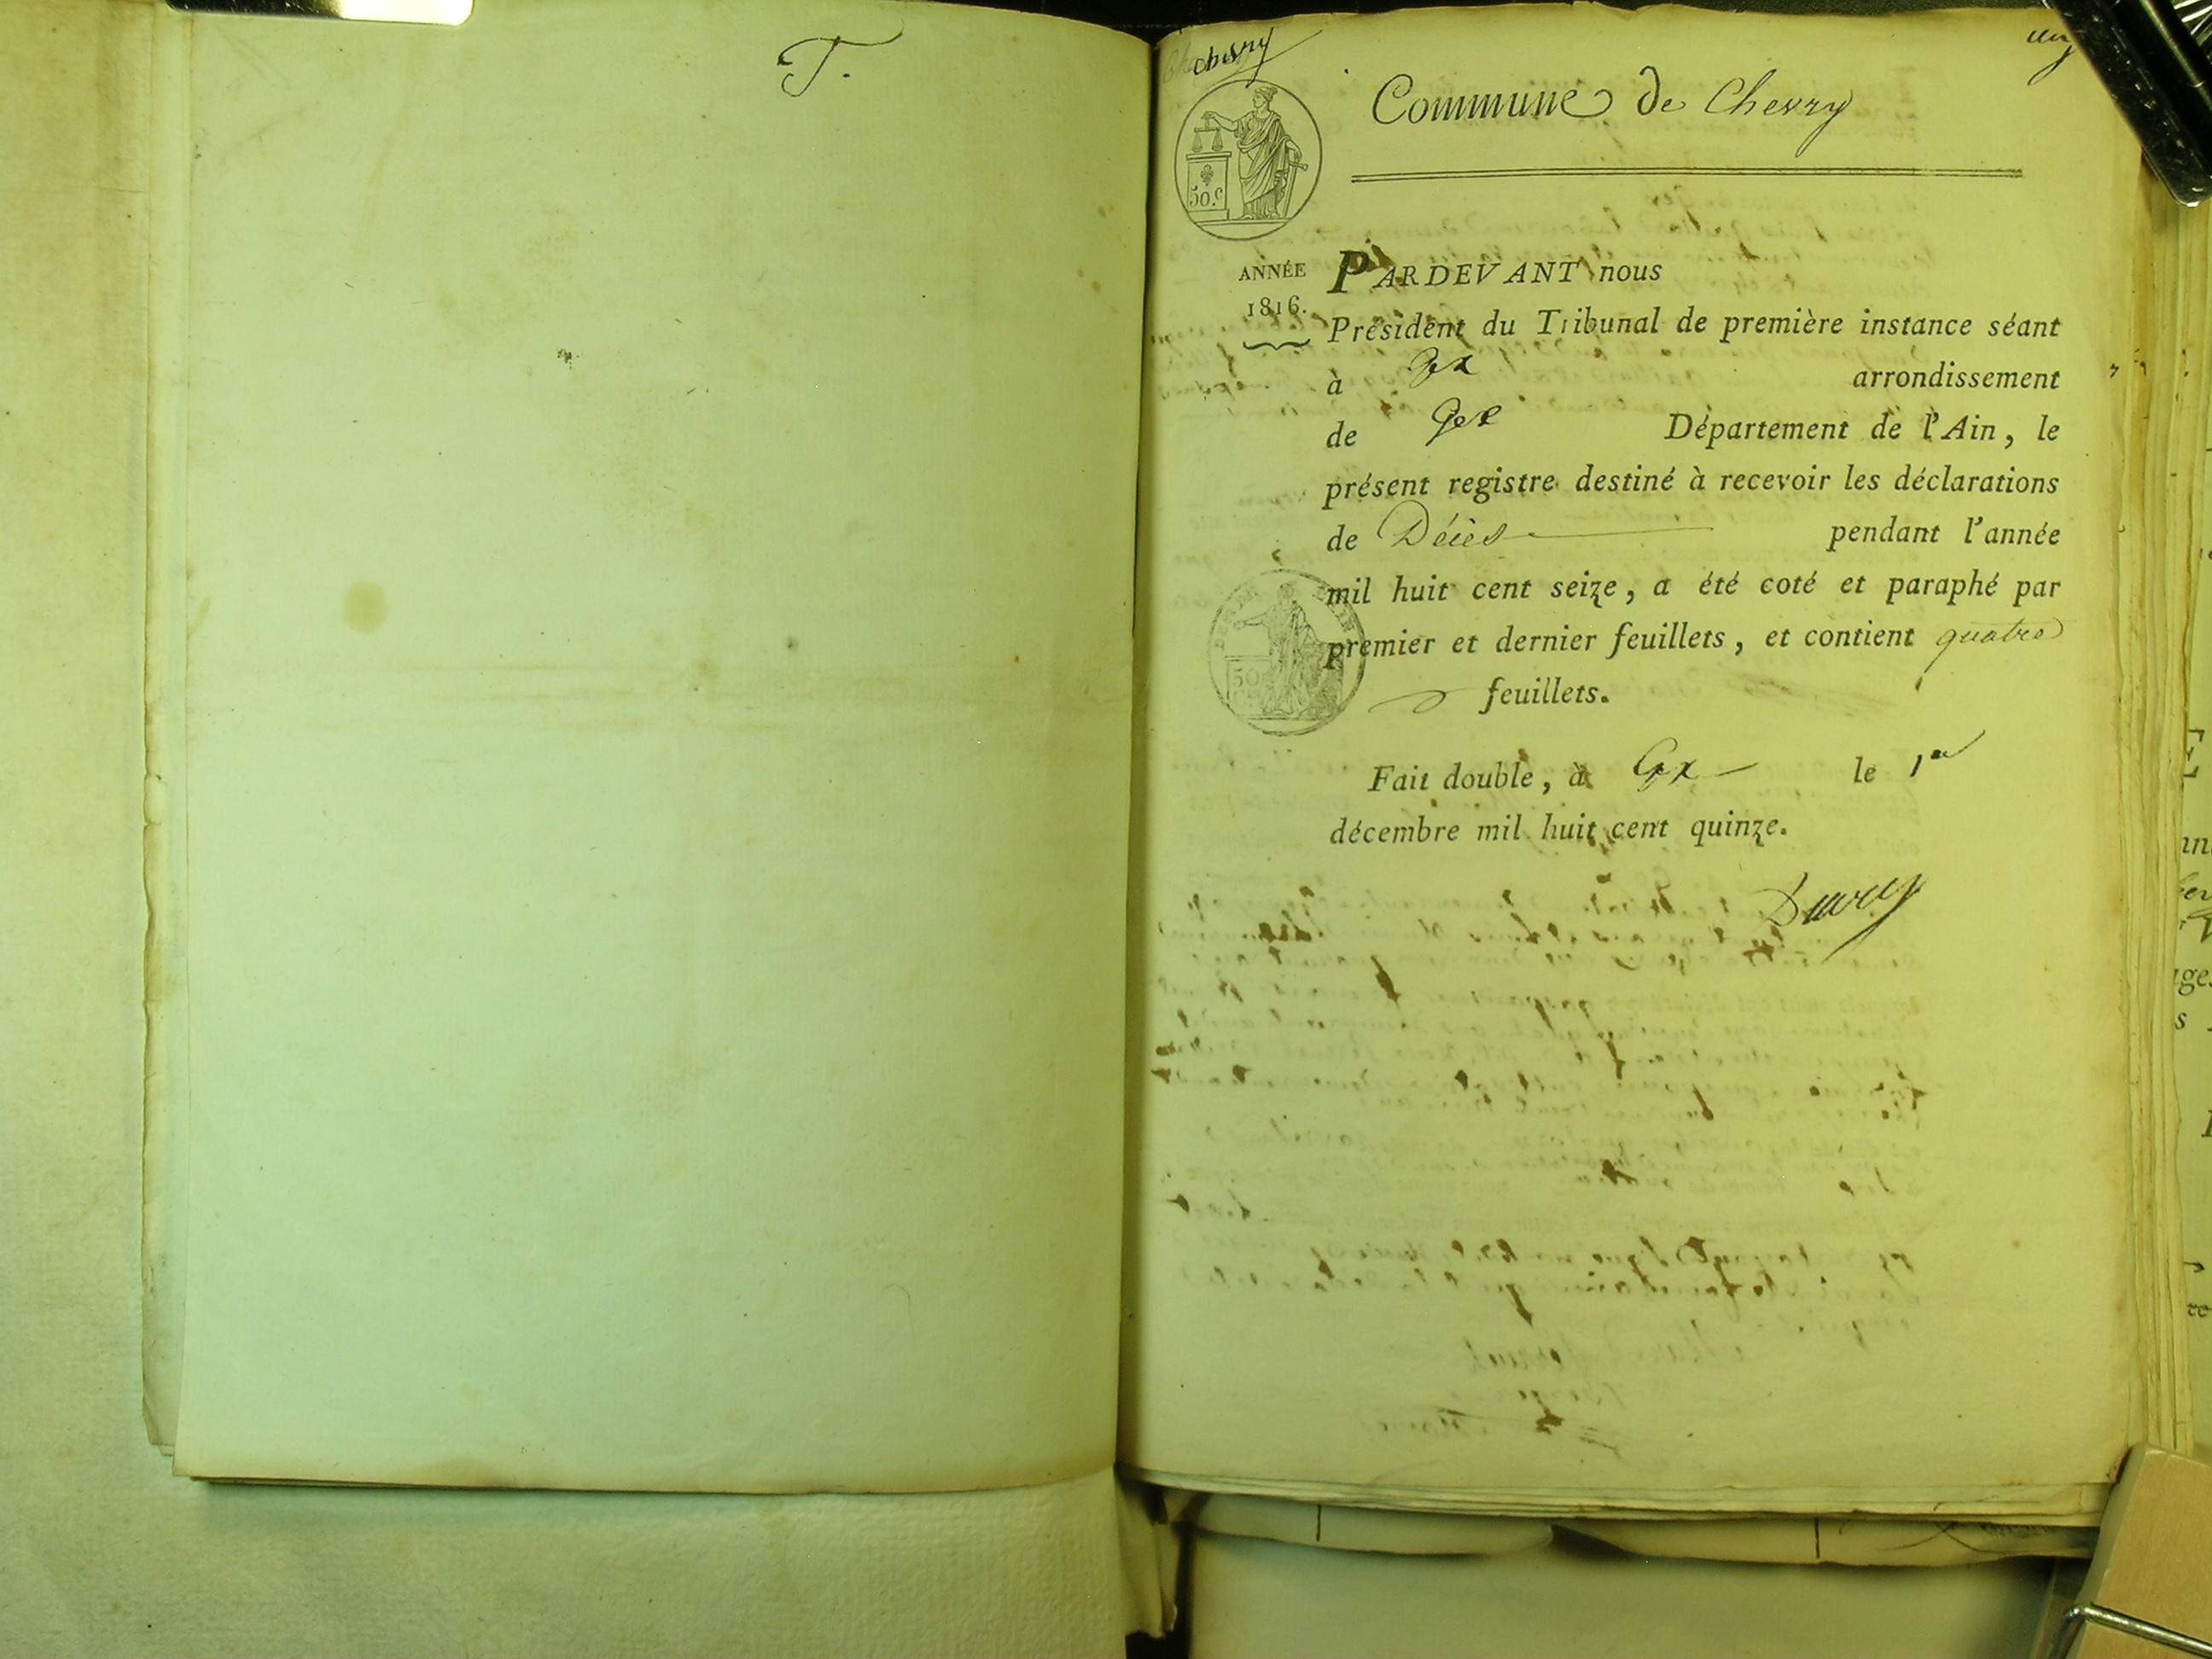 T.
Chevry
un
Commune de Chevry
50.c
ANNÉE
1816.
PARDEVANT nous
Président du Tribunal de première instance séant
à Gex arrondissement
de Gex Département de l'Ain, le
présent registre destiné à recevoir les déclarations
de Décès pendant l'année
mil huit cent seize, a été coté et paraphé par
premier et dernier feuillets, et contient quatre
feuillets.
50
Fait double, à Gex le 1er
décembre mil huit cent quinze.